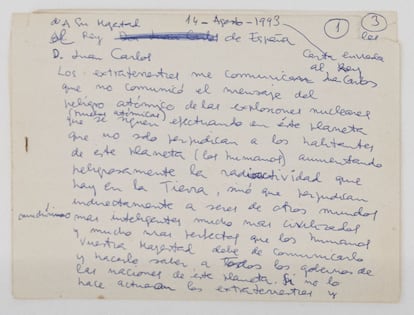 14 - Agosto - 1993
1
3
A Su Majestad
al Rey Don Juan Carlos de España
Carta enviada
al Rey
D. Juan Carlos
Los extraterrestres me comunicaron
que no comunicó el mensaje del
peligro atómico de las explosiones nucleares
(pruebas atómicas)
que se siguen efectuando en éste planeta
que no solo perjudican a los habitantes
de este planeta (los humanos) aumentando
peligrosamente la radioactividad que
hay en la Tierra, sinó que perjudican
indirectamente a seres de otros mundos
muchísimo mas inteligentes mucho mas civilizados
y mucho mas perfectos que los humanos
Vuestra Majestad debe de comunicarlo
y hacerlo saber a todos los gobiernos de
las naciones de este planeta. Si no lo
hace actuaran los extraterrestres y